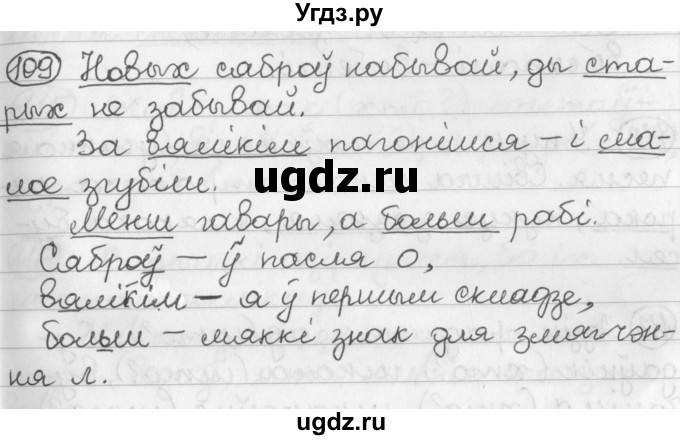 Угдз.ру
109 Новых саброў набывай, ды ста-
рых не забывай.
За вялікім пагонімся – і ма-
лое згубім.
ugdz.ru
Менш гавары, а больш рабі.
Саброў – ў пасля о,
вялікім – я ў першым складзе,
больш – мяккі знак для змягчэн-
ня л.
ugdz.ru